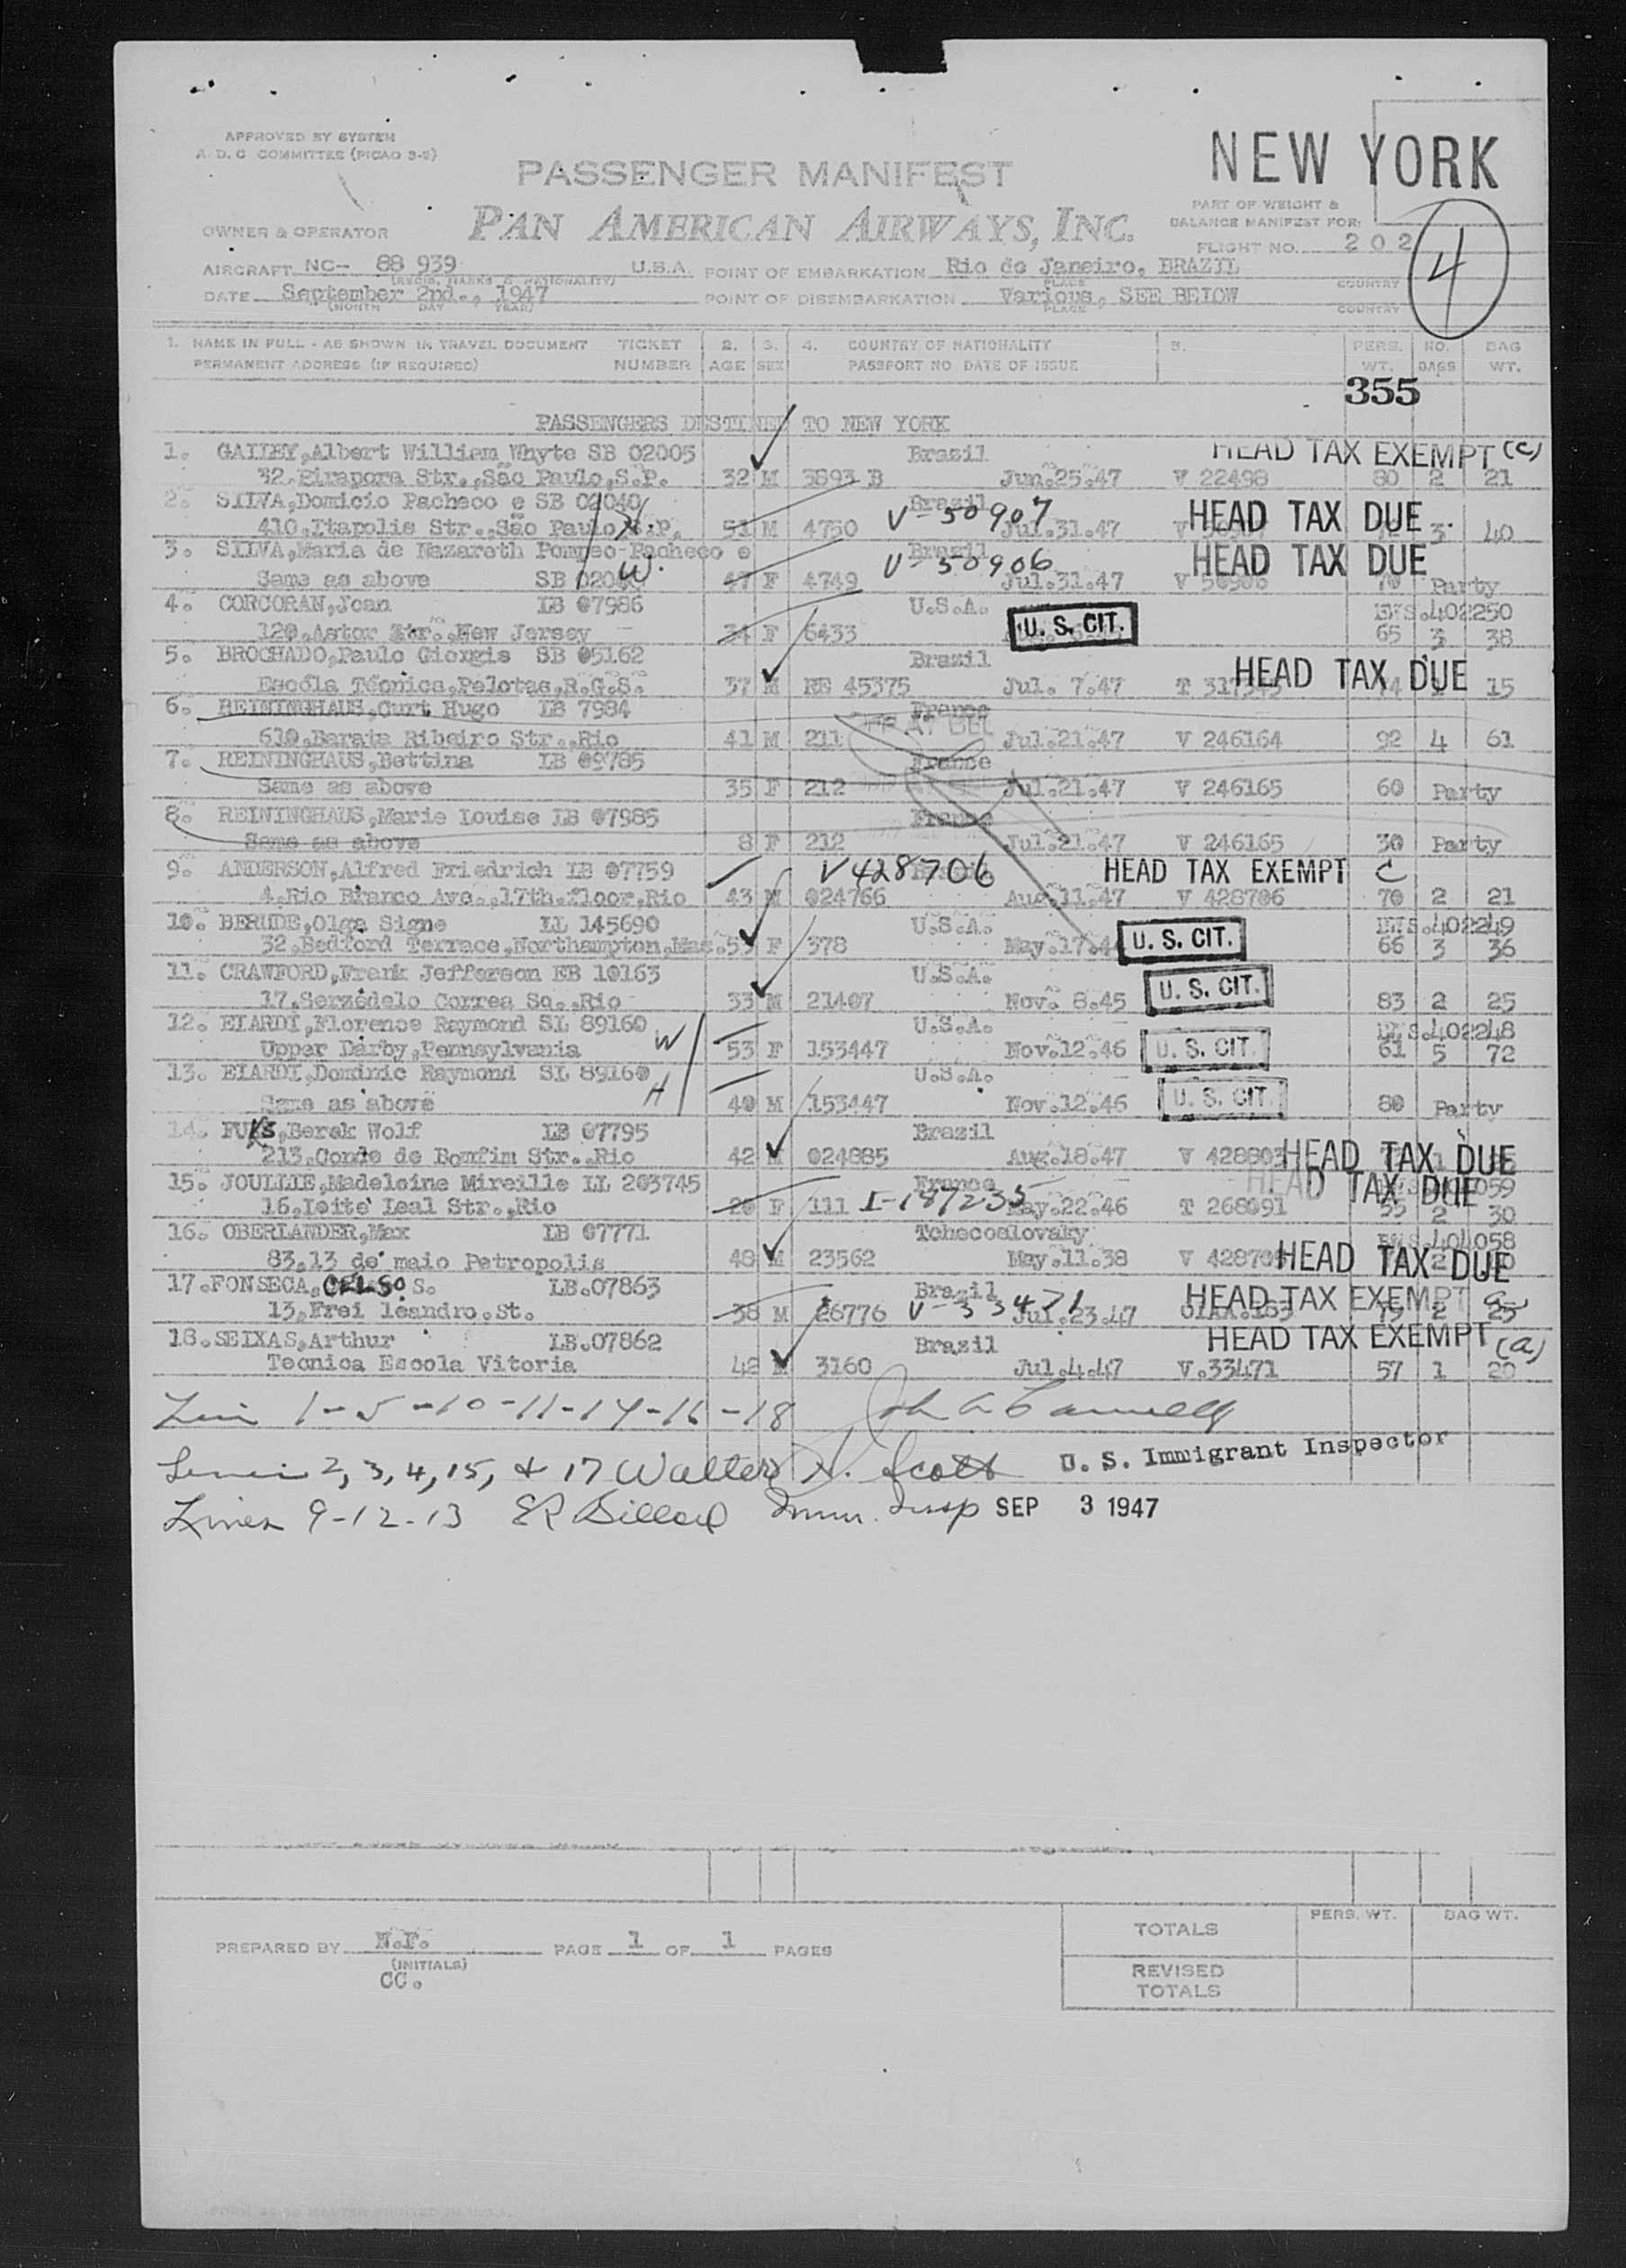 APPROVED BY SYSTEM
A. D. C COMMITTEE (PICAO 3-2)
NEW YORK
PASSENGER MANIFEST
PART OF WEIGHT &
BALANCE MANIFEST FOR:
OWNER & OPERATOR PAN AMERICAN AIRWAYS, INC.
FLIGHT NO. 202
4
AIRCRAFT NC- 88 939 U.S.A. POINT OF EMBARKATION Rio de Janeiro, BRAZIL
(REGIS. MARKS & NATIONALITY) PLACE COUNTRY
DATE September 2nd., 1947 POINT OF DISEMBARKATION Various, SEE BELOW
(MONTH DAY YEAR) PLACE COUNTRY
1. NAME IN FULL - AS SHOWN IN TRAVEL DOCUMENT TICKET 2. 3. 4. COUNTRY OF NATIONALITY 5. PERS. NO. BAG
PERMANENT ADDRESS (IF REQUIRED) NUMBER AGE SEX PASSPORT NO DATE OF ISSUE WT. BAGS WT.
355
PASSENGERS DESTINED TO NEW YORK
1. GAILEY,Albert William Whyte SB 02005 Brasil HEAD TAX EXEMPT (c)
32.Pirapora Str.,São Paulo,S.P. 32 M 3893 B Jun.25.47 V 22498 80 2 21
2. SILVA,Domicio Pacheco e SB 02040 Brazil V-50907 HEAD TAX DUE
410,Itapolis Str.,São Paulo 51 M 4750 Jul.31.47 3 40
3. SILVA,Maria de Nazareth Pompeo Pacheco e Brazil V-50906 HEAD TAX DUE
Same as above SB W. 47 F 4749 Jul.31.47 V 50906 70 Party
4. CORCORAN,Joan LB 07986 U.S.A. U. S. CIT. 402250
120.Astor Str.,New Jersey 34 F 6433 65 3 38
5. BROCHADO,Paulo Giorgis SB 05162 Brazil HEAD TAX DUE
Escóla Técnica,Pelotas,R.G.S. 37 M RE 45375 Jul. 7.47 15
6. REININGHAUS,Curt Hugo LB 7984 France
610,Barata Ribeiro Str.,Rio 41 M 211 Jul.21.47 V 246164 92 4 61
7. REININGHAUS,Bettina LB 09785 France
Same as above 35 F 212 Jul.21.47 V 246165 60 Party
8. REININGHAUS,Marie Louise LB 07985 France
Same as above 8 F 212 Jul.21.47 V 246165 30 Party
9. ANDERSON,Alfred Friedrich LB 07759 V428706 HEAD TAX EXEMPT C
4,Rio Branco Ave.,17th.floor,Rio 43 M 024766 Aug.11.47 V 428706 70 2 21
10. BERUDE,Olga Signe LL 145690 U.S.A. U. S. CIT. 402249
32,Bedford Terrace,Northampton,Mas. F 378 May.17.4 66 3 36
11. CRAWFORD,Frank Jefferson EB 10163 U.S.A. U. S. CIT.
17.Serzedelo Correa Sq.,Rio 33 M 21407 Nov. 8.45 83 2 25
12. ELARDI,Florence Raymond SL 89160 W U.S.A. U. S. CIT. 402248
Upper Darby,Pennsylvania 53 F 153447 Nov.12.46 61 5 72
13. ELARDI,Dominic Raymond SL 89160 H U.S.A. U. S. CIT.
Same as above 40 M 153447 Nov.12.46 80 Party
14. FUKS,Berek Wolf LB 07795 Brazil
213,Conde de Bomfim Str.,Rio 42 M 024885 Aug.18.47 HEAD TAX DUE
15. JOULLIE,Madeleine Mireille LL 203745 France HEAD TAX DUE
16.Leite Leal Str.,Rio F 111 I-187235 May.22.46 T 268091 55 2 30
16. OBERLANDER,Max LB 07771 Tchecoslovaky 404058
83,13 de maio Petropolis 48 M 23562 May.11.38 HEAD TAX DUE
17.FONSECA,CELSO S. LB.07863 Brazil HEAD TAX EXEMPT
13,Frei leandro.St. 38 M 26776 V-33471 Jul.23.47 2 25
18.SEIXAS,Arthur LB.07862 Brazil HEAD TAX EXEMPT (a)
Tecnica Escola Vitoria 42 M 3160 Jul.4.47 V.33471 57 1 20
1-5-10-11-14-16-18 John
Lines 2, 3, 4, 15, & 17 Walter H. Scott U. S. Immigrant Inspector
Lines 9-12-13 Imm. Insp SEP 3 1947
PREPARED BY N.F. PAGE 1 OF 1 PAGES
(INITIALS)
CC.
TOTALS PERS. WT. BAG WT.
REVISED
TOTALS